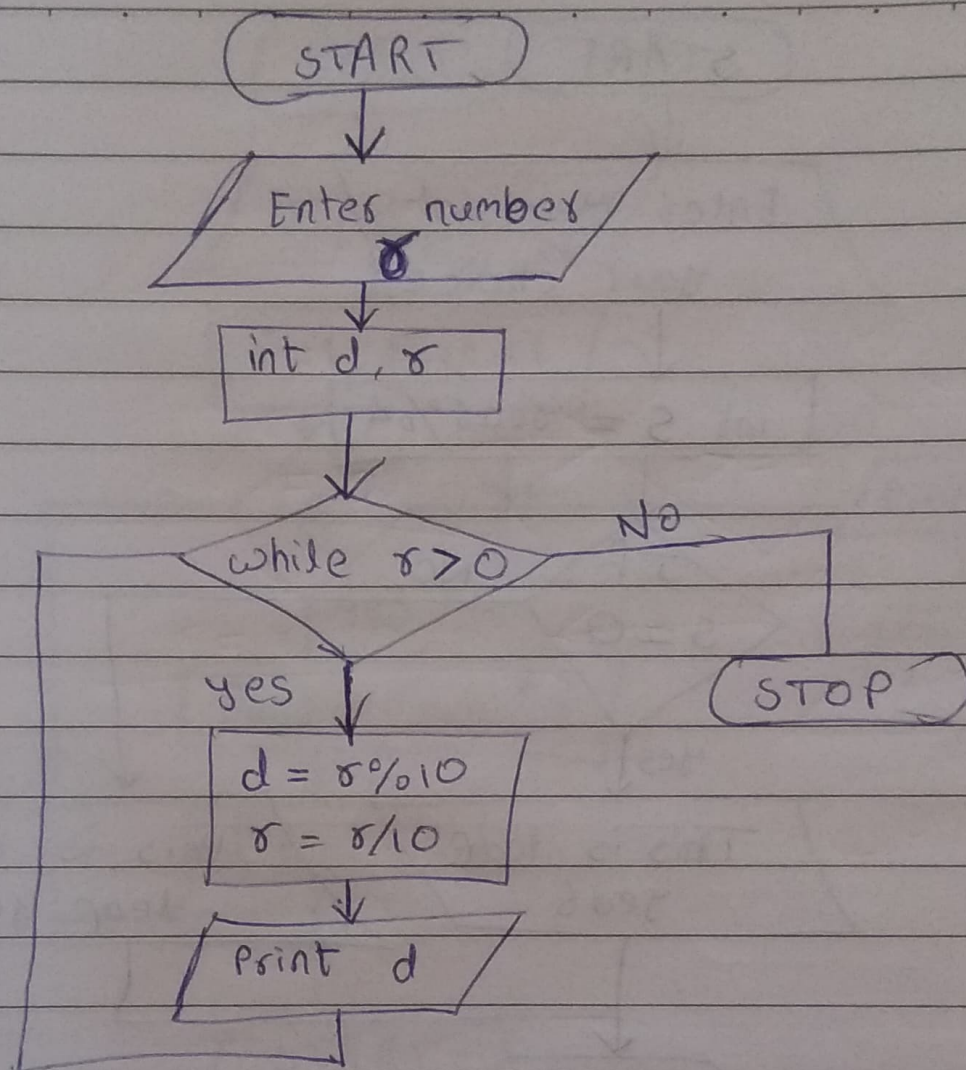 START
Enter number
r
int d, r
while r>0
NO
yes
STOP
d = r%10
r = r/10
Print d